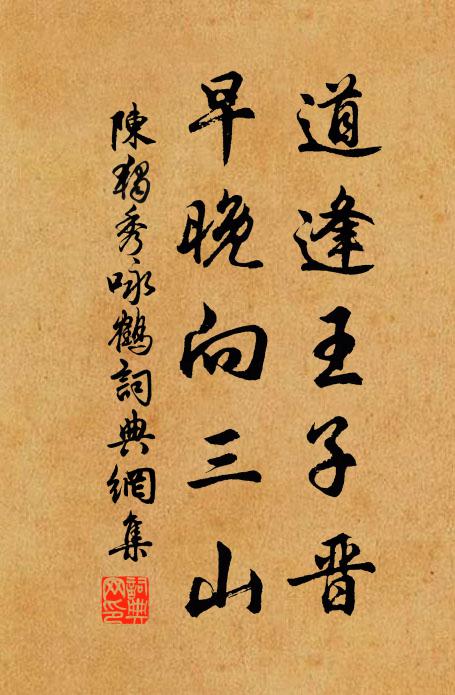 道逢王子晋
早晚向三山
陳獨秀咏鶴詞典網集
詞典网印